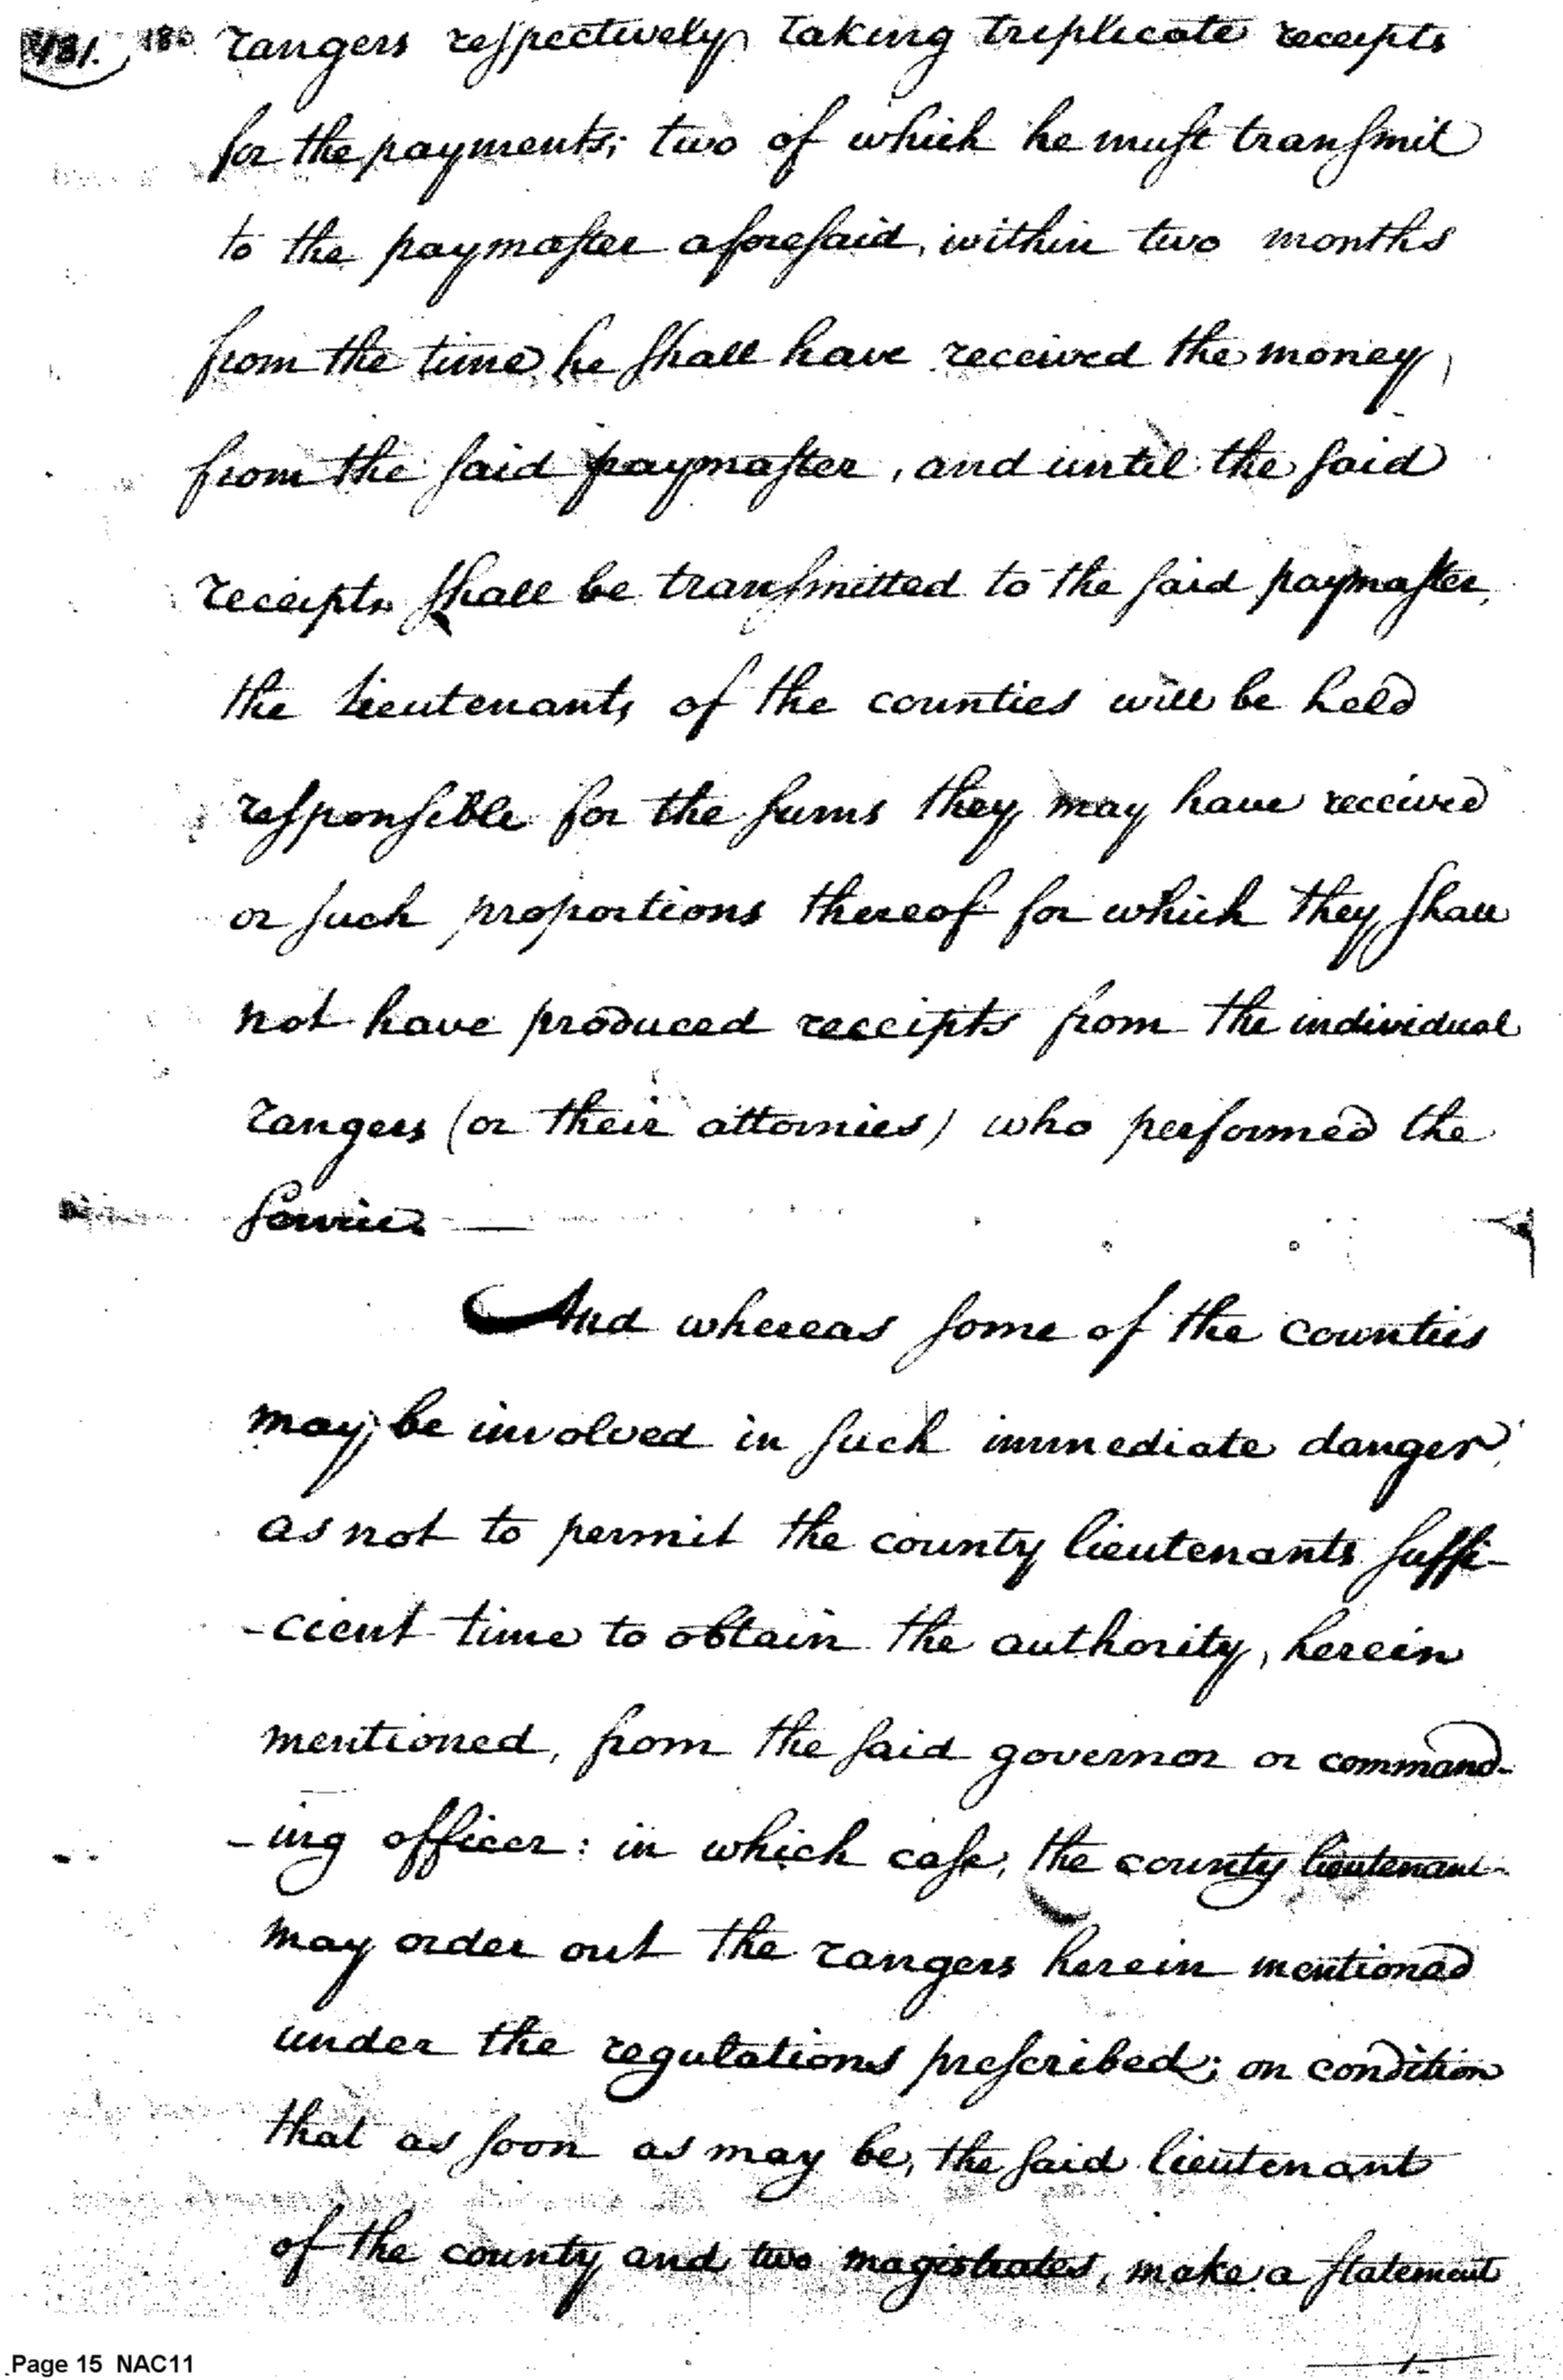 181. 180 rangers respectively taking triplicate receipts
for the payments; two of which he must transmit
to the paymaster aforesaid, within two months
from the time he shall have received the money,
from the said paymaster, and until the said
receipts shall be transmitted to the said paymaster,
the lieutenants of the counties will be held
responsible for the sums they may have received
or such proportions thereof for which they shall
not have produced receipts from the individual
rangers (or their attornies) who performed the
service. —
And whereas some of the counties
may be involved in such immediate danger,
as not to permit the county lieutenants suffi-
-cient time to obtain the authority, herein
mentioned, from the said governor or command-
-ing officer: in which case, the county lieutenant
may order out the rangers herein mentioned
under the regulations prescribed; on condition
that as soon as may be, the said lieutenant
of the county and two magistrates, make a statement
Page 15 NAC11